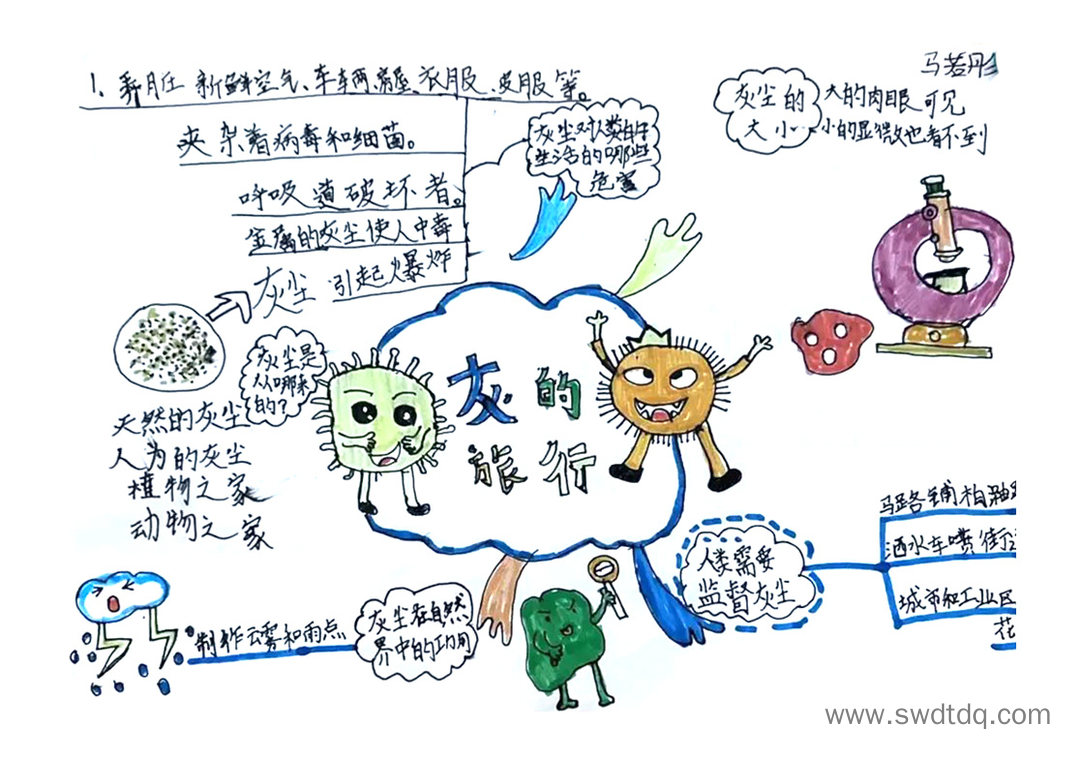 马若彤
1. 弄脏 新鲜空气、车辆、房屋、衣服、皮服等。
夹杂着病毒和细菌。
呼吸道破坏者。
金属的灰尘使人中毒
引起爆炸
灰尘对人类的
生活的哪些
危害
灰尘的
大小
大的肉眼可见
小的显微也看不到
灰尘
灰尘是
从哪来
的？
天然的灰尘
人为的灰尘
植物之家
动物之家
灰的
旅行
人类需要
监督灰尘
马路铺柏油
洒水车喷街
城市和工业区
花
灰尘在自然
界中的功用
制作云雾和雨点
www.swdtdq.com